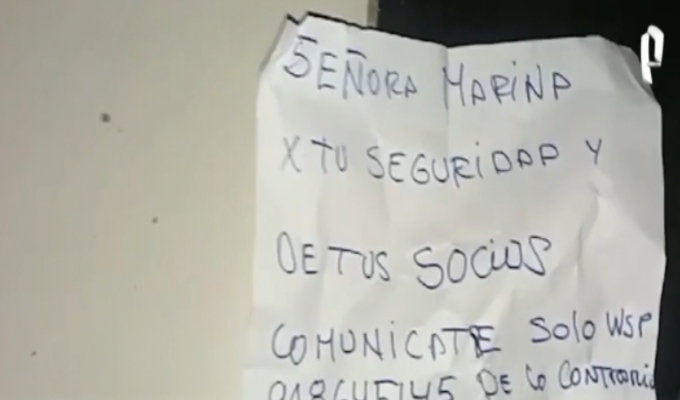 SEÑORA MARINA
X TU SEGURIDAD Y
DE TUS SOCIOS
COMUNICATE SOLO WSP
DE LO CONTRARIO